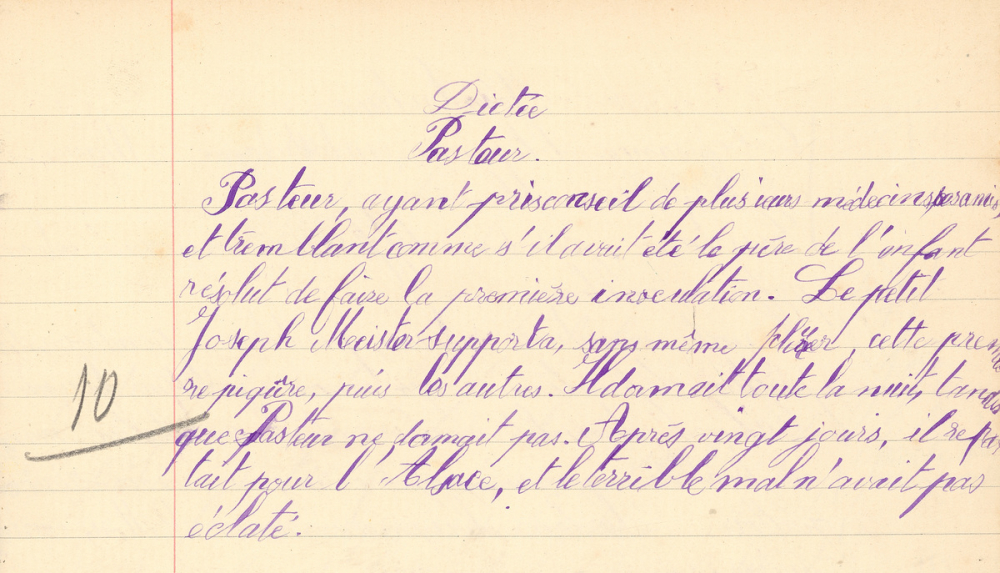 Dictée
Pasteur.
Pasteur, ayant pris conseil de plusieurs médecins, ses amis
et tremblant comme s'il avait été le père de l'enfant
résolut de faire la première inoculation. Le petit
Joseph Meister supporta, sans même pleurer, cette premiè
re piqûre, puis les autres. Il dormait toute la nuit, tandis
que Pasteur ne dormait pas. Après vingt jours, il repar
10
tait pour l'Alsace, et le terrible mal n'avait pas
éclaté.